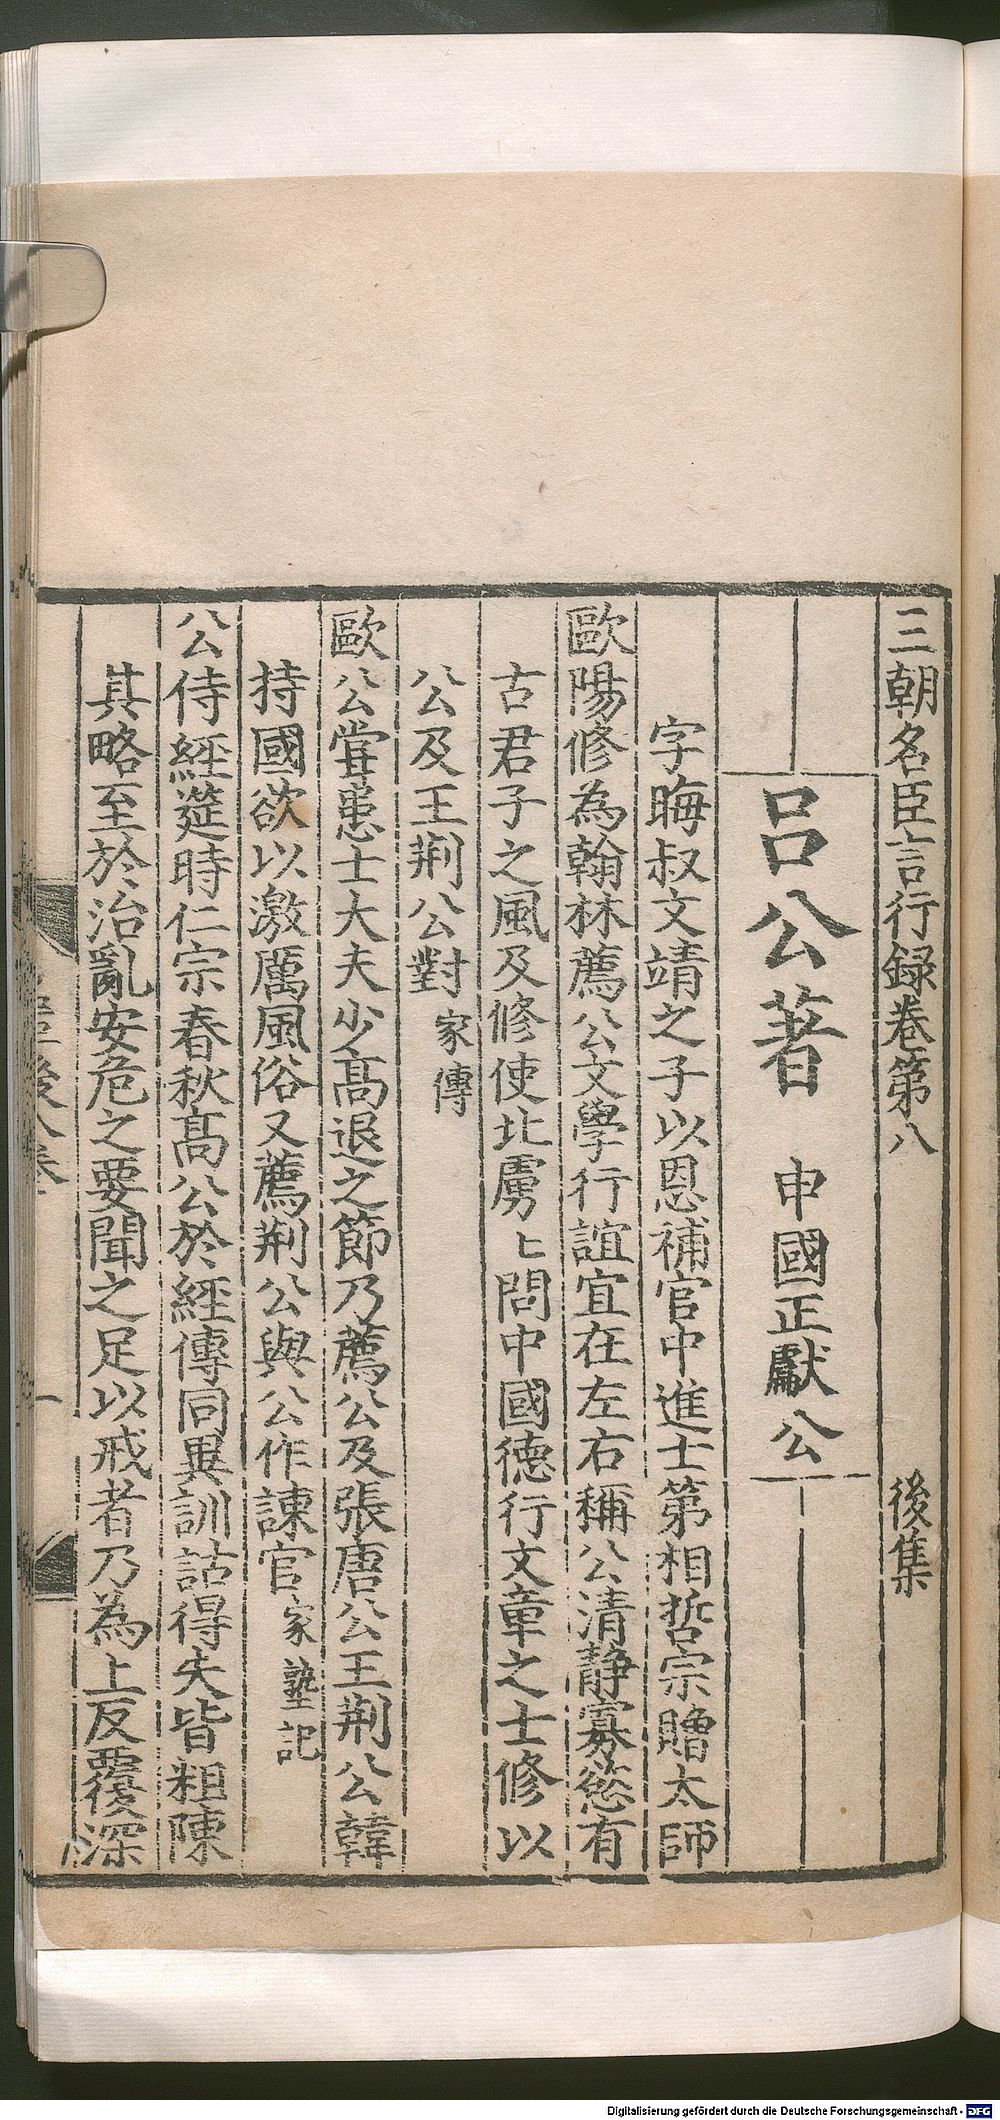 三朝名臣言行録卷第八　後集
吕公著　申國正獻公
字晦叔文靖之子以恩補官中進士第相哲宗贈太師
歐陽修為翰林薦公文學行誼宜在左右稱公清靜寡慾有
古君子之風及修使北虜〻問中國德行文章之士修以
公及王荆公對　家傳
歐公嘗患士大夫少髙退之節乃薦公及張唐公王荆公韓
持國欲以激厲風俗又薦荆公與公作諫官　家塾記
公侍經筵時仁宗春秋髙公於經傳同異訓詁得失皆粗陳
其略至於治亂安危之要聞之足以戒者乃為上反覆深
Digitalisierung gefördert durch die Deutsche Forschungsgemeinschaft - DFG